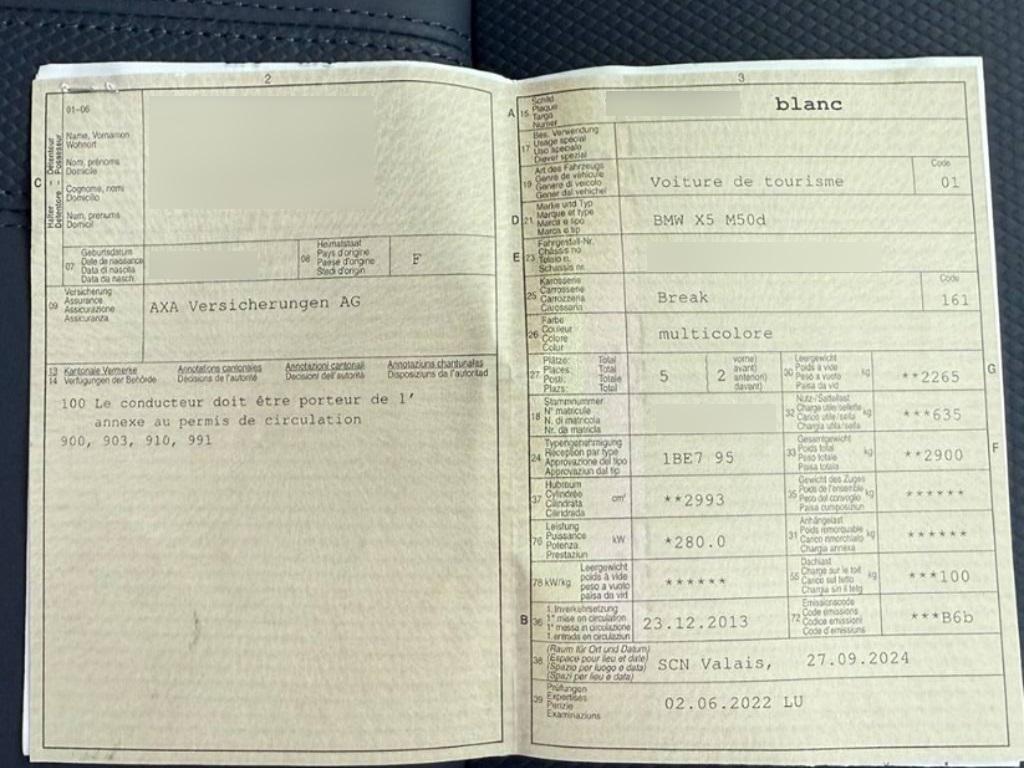 2
01-06
Name, Vornamen
Wohnort
Nom, prénoms
Domicile
Cognome, nomi
Domicilio
Num, prenums
Domicil
C
Halter Détenteur
Detentore - Possessur
07
Geburtsdatum
Date de naissance
Data di nascita
Data da nasch.
08
Heimatstaat
Pays d'origine
Paese d'origine
Stadi d'origin
F
09
Versicherung
Assurance
Assicurazione
Assicuranza
AXA Versicherungen AG
13 Kantonale Vermerke Annotations cantonales Annotazioni cantonali Annotaziuns chantunalas
14 Verfügungen der Behörde Décisions de l'autorité Decisioni dell'autorità Disposiziuns da l'autoritad
100 Le conducteur doit être porteur de l'
annexe au permis de circulation
900, 903, 910, 991
3
A 15
Schild
Plaque
Targa
Numer
blanc
17
Bes. Verwendung
Usage spécial
Uso speciale
Diever spezial
19
Art des Fahrzeugs
Genre de véhicule
Genere di veicolo
Gener dal vehichel
Voiture de tourisme
Code
01
D 21
Marke und Typ
Marque et type
Marca e tipo
Marca e tip
BMW X5 M50d
E 23
Fahrgestell-Nr.
Châssis no
Telaio n.
Schassis nr.
25
Karosserie
Carrosserie
Carrozzeria
Carossaria
Break
Code
161
26
Farbe
Couleur
Colore
Colur
multicolore
27
Plätze: Total
Places: Total
Posti: Totale
Plazs: Total
5
( 2
vorne)
avant)
anteriori)
davant)
30
Leergewicht
Poids à vide
Peso a vuoto
Paisa da vid
kg
**2265
G
18
Stammnummer
N° matricule
N. di matricola
Nr. da matricla
32
Nutz-/Sattellast
Charge utile/sellette
Carico utile/sella
Chargia utila/sella
kg
***635
24
Typengenehmigung
Réception par type
Approvazione del tipo
Approvaziun dal tip
1BE7 95
33
Gesamtgewicht
Poids total
Peso totale
Paisa totala
kg
**2900
F
37
Hubraum
Cylindrée
Cilindrata
Cilindrada
cm³
**2993
35
Gewicht des Zuges
Poids de l'ensemble
Peso del convoglio
Paisa cumposiziun
kg
******
76
Leistung
Puissance
Potenza
Prestaziun
kW
*280.0
31
Anhängelast
Poids remorquable
Carico rimorchiato
Chargia annexa
kg
******
78 kW/kg
Leergewicht
poids à vide
peso a vuoto
paisa da vid
******
55
Dachlast
Charge sur le toit
Carico sul tetto
Chargia sin il tetg
kg
***100
B 36
1. Inverkehrsetzung
1re mise en circulation
1a messa in circolazione
1. entrada en circulaziun
23.12.2013
72
Emissionscode
Code émissions
Codice emissioni
Code d'emissiuns
***B6b
38
(Raum für Ort und Datum)
(Espace pour lieu et date)
(Spazio per luogo e data)
(Spazi per lieu e data)
SCN Valais, 27.09.2024
39
Prüfungen
Expertises
Perizie
Examinaziuns
02.06.2022 LU